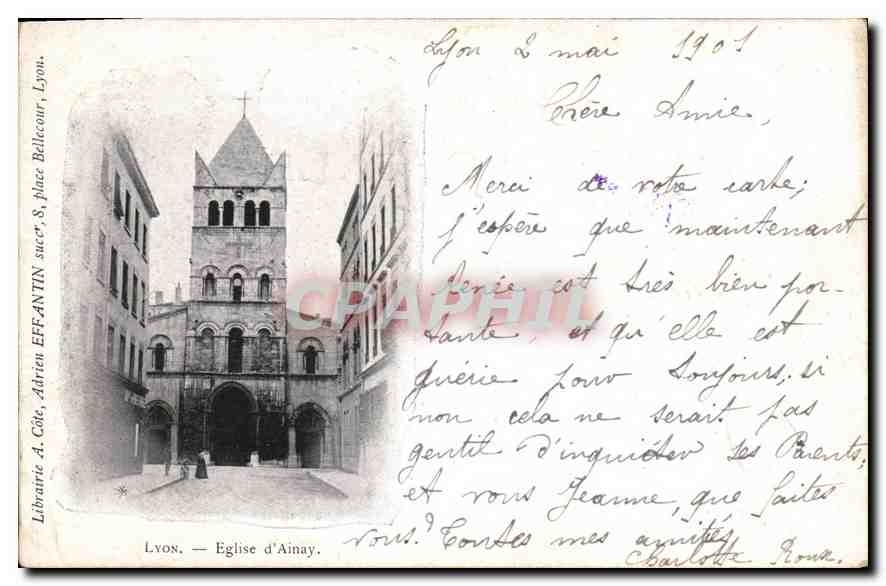 Librairie A. Côte, Adrien EFFANTIN succr, 8, place Bellecour, Lyon.
Lyon 2 mai 1901
Chère Amie,
Merci de votre carte;
j'espère que maintenant
Renée est très bien por-
tante et qu'elle est
guérie pour toujours, si
non cela ne serait pas
gentil d'inquiéter ses Parents;
et vous Jeanne, que faites
vous? Toutes mes amitiés
Charlotte Roux
LYON. — Eglise d'Ainay.
CPAPHIL